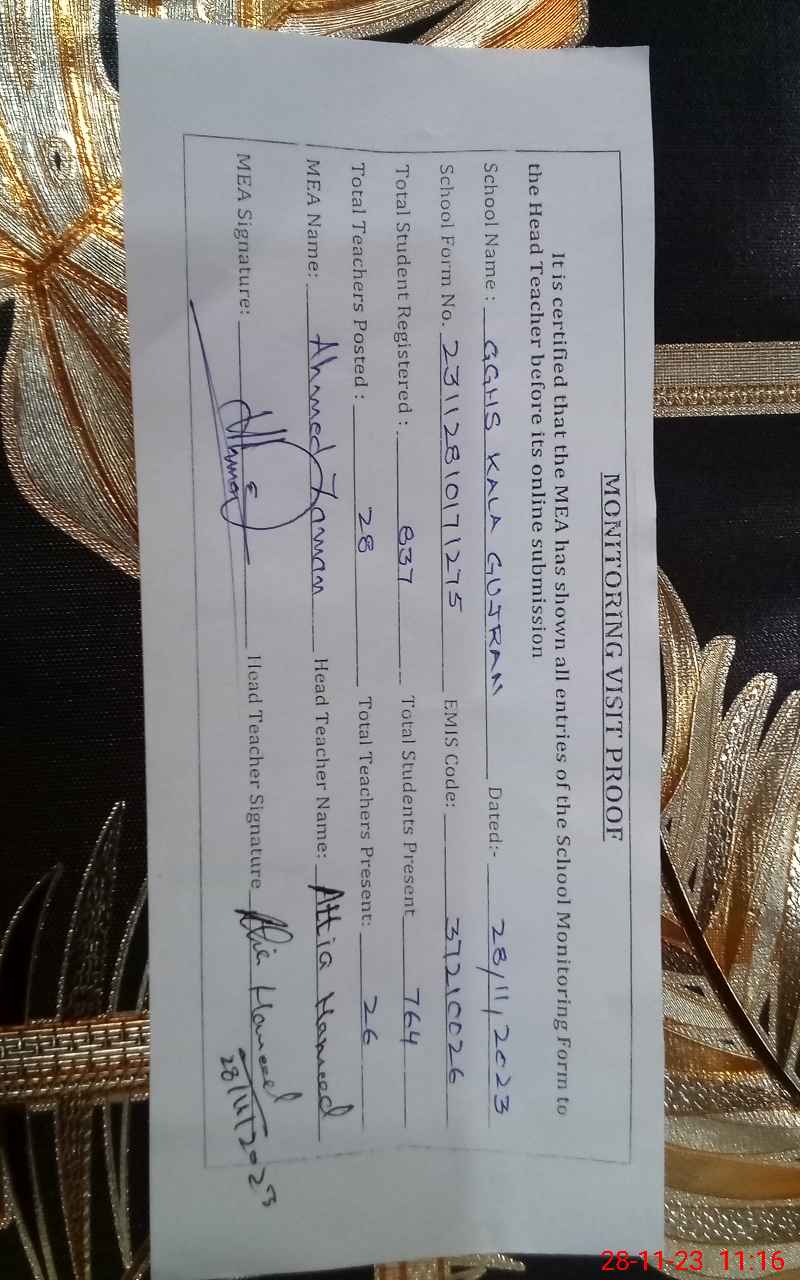 MONITORING VISIT PROOF
It is certified that the MEA has shown all entries of the School Monitoring Form to
the Head Teacher before its online submission
School Name : GGHS KALA GUJRAN Dated:- 28/11/2023
School Form No. 23112810171275 EMIS Code: 37210026
Total Student Registered : 837 Total Students Present 764
Total Teachers Posted : 28 Total Teachers Present: 26
MEA Name: Ahamed Zaman Head Teacher Name: Attia Hameed
MEA Signature: Head Teacher Signature Attia Hameed
28/11/2023
28-11-23 11:16